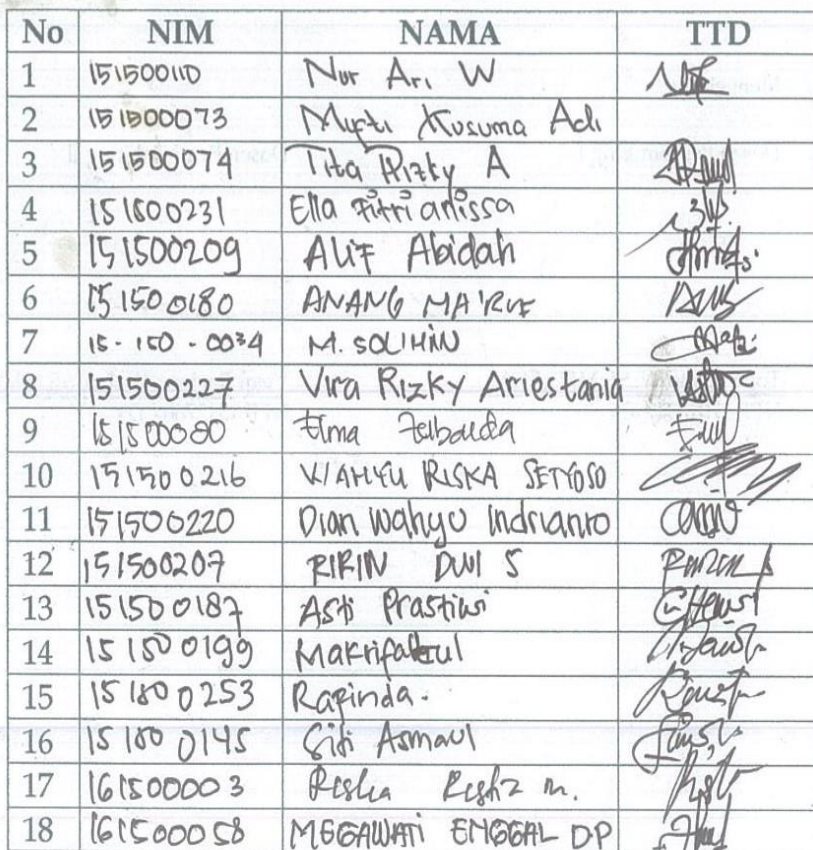 No NIM NAMA TTD
1 151500110 Nur Ari W
2 151500073 Mufti Kusuma Adi
3 151500074 Tita Rizky A
4 151500231 Ella Fitri arlissa
5 151500209 ALIF Abidah
6 151500180 ANANG MA'RUF
7 15-150-0034 M. SOLIHIN
8 151500227 Vira Rizky Ariestania
9 151500080 Elma
10 151500216 WAHYU RISKA SETYOSO
11 151500220 Dian Wahyu Indrianto
12 151500207 RIRIN DWI S
13 151500187 Asti Prastiwi
14 151500199 Makrifatul
15 151500253 Raginda.
16 151500145 Siti Asmaul
17 161500003 Riska m.
18 161500058 MEGAWATI ENGGAL DP